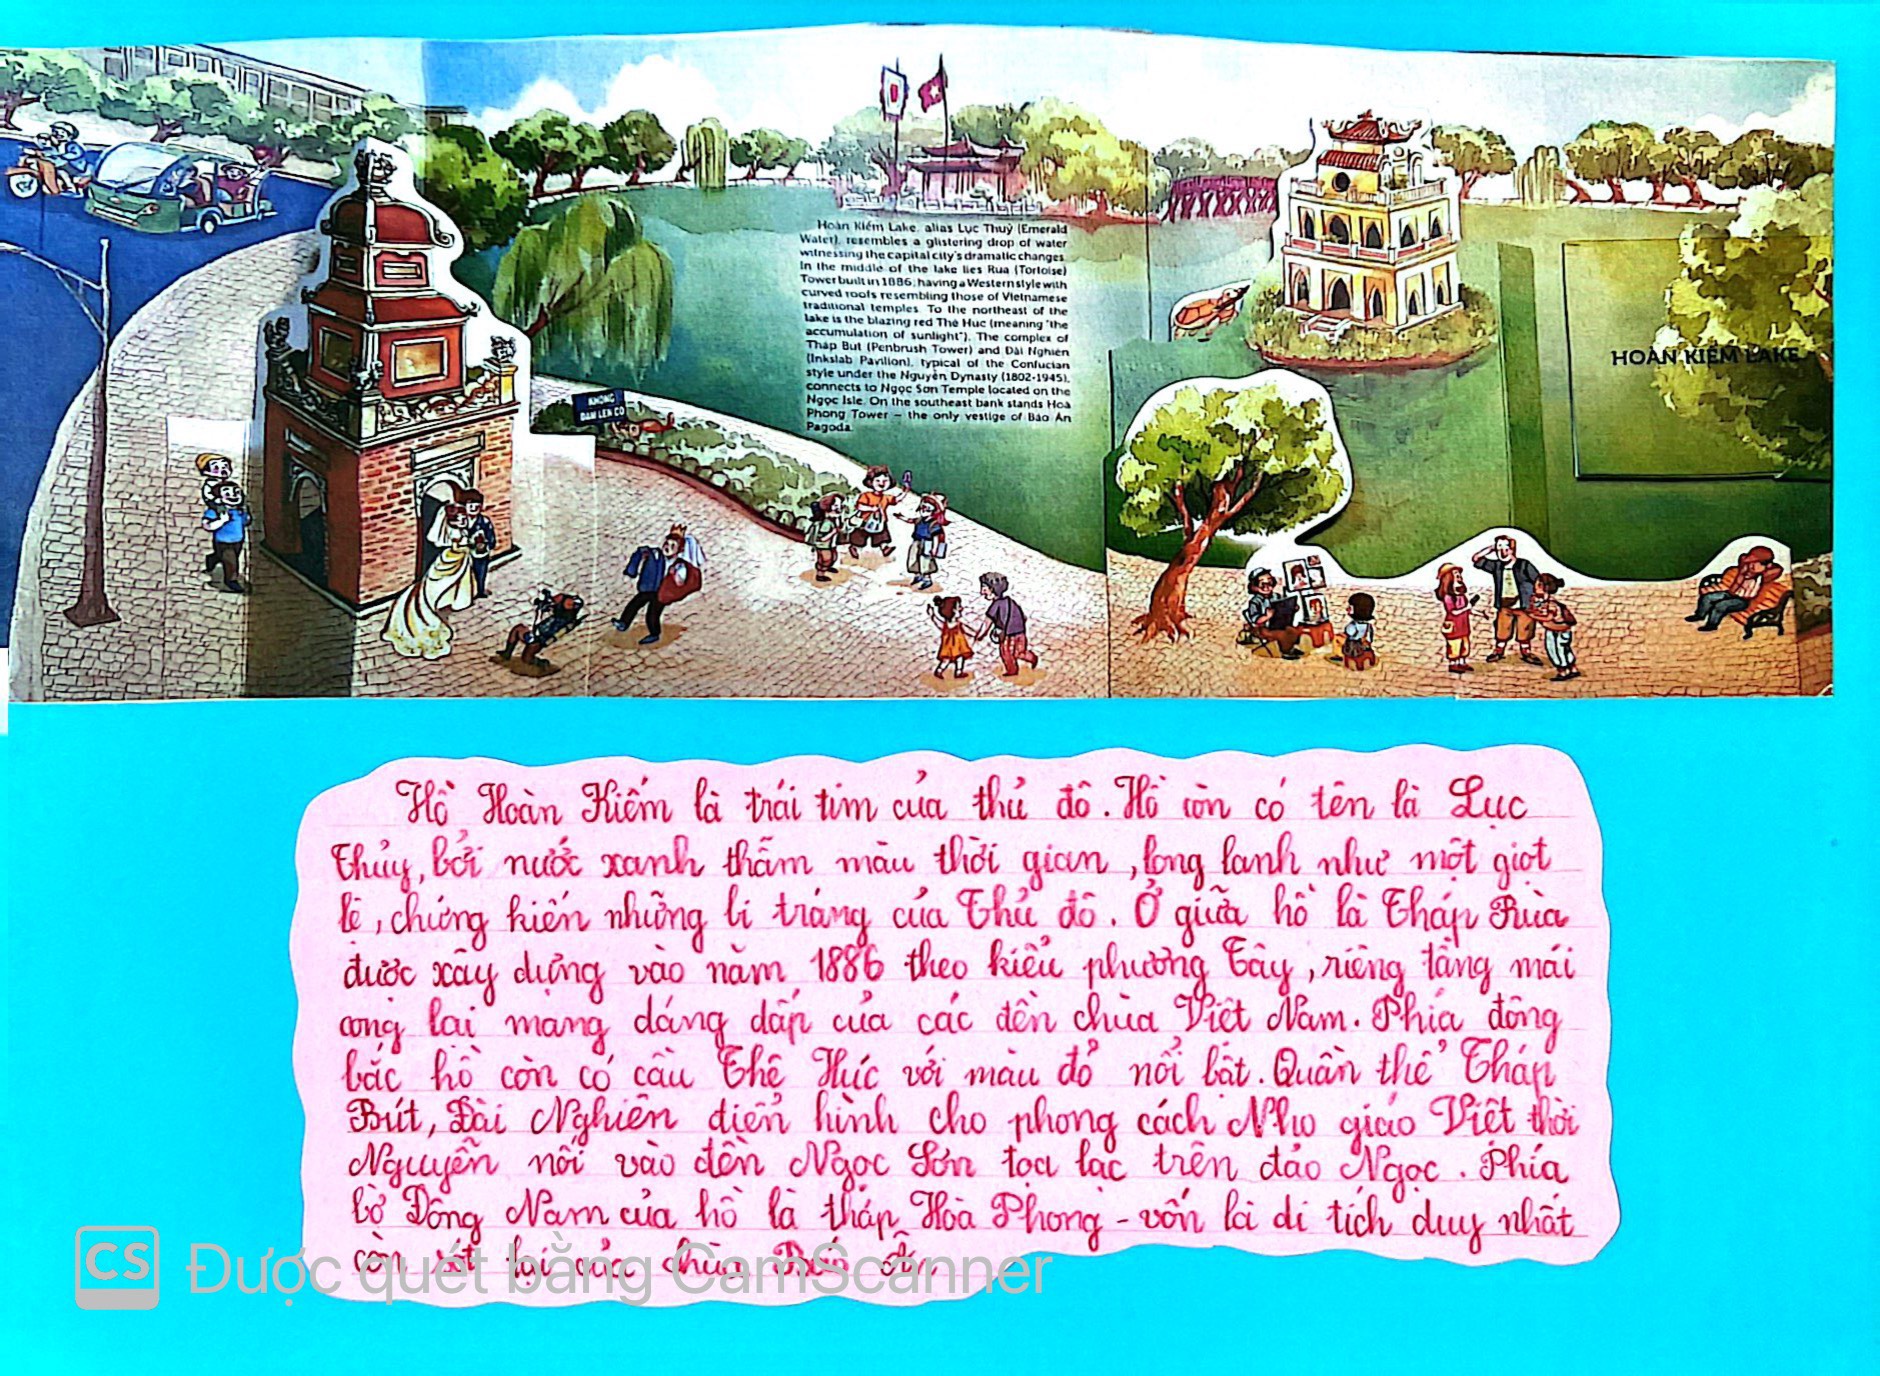 Hoàn Kiếm Lake, alias Lục Thuỷ (Emerald
Water), resembles a glistering drop of water
witnessing the capital city's dramatic changes.
In the middle of the lake lies Rùa (Tortoise)
Tower built in 1886, having a Western style with
curved roofs resembling those of Vietnamese
traditional temples. To the northeast of the
lake is the blazing red Thê Húc (meaning "the
accumulation of sunlight"). The complex of
Tháp Bút (Penbrush Tower) and Đài Nghiên
(Inkslab Pavilion), typical of the Confucian
style under the Nguyễn Dynasty (1802-1945),
connects to Ngọc Sơn Temple located on the
Ngọc Isle. On the southeast bank stands Hoà
Phong Tower – the only vestige of Báo Ân
Pagoda.
HOÀN KIẾM LAKE
KHÔNG
DẪM LÊN CỎ
Hồ Hoàn Kiếm là trái tim của thủ đô. Hồ còn có tên là Lục
Thủy, bởi nước xanh thẫm màu thời gian, long lanh như một giọt
lệ, chứng kiến những bi tráng của Thủ đô. Ở giữa hồ là Tháp Rùa
được xây dựng vào năm 1886 theo kiểu phương Tây, riêng tầng mái
cong lại mang dáng dấp của các đền chùa Việt Nam. Phía đông
bắc hồ còn có cầu Thê Húc với màu đỏ nổi bật. Quần thể Tháp
Bút, Đài Nghiên điển hình cho phong cách Nho giáo Việt thời
Nguyễn nối vào đền Ngọc Sơn tọa lạc trên đảo Ngọc. Phía
bờ Đông Nam của hồ là tháp Hòa Phong - vốn là di tích duy nhất
còn sót lại của chùa Báo Ân
CS Được quét bằng CamScanner